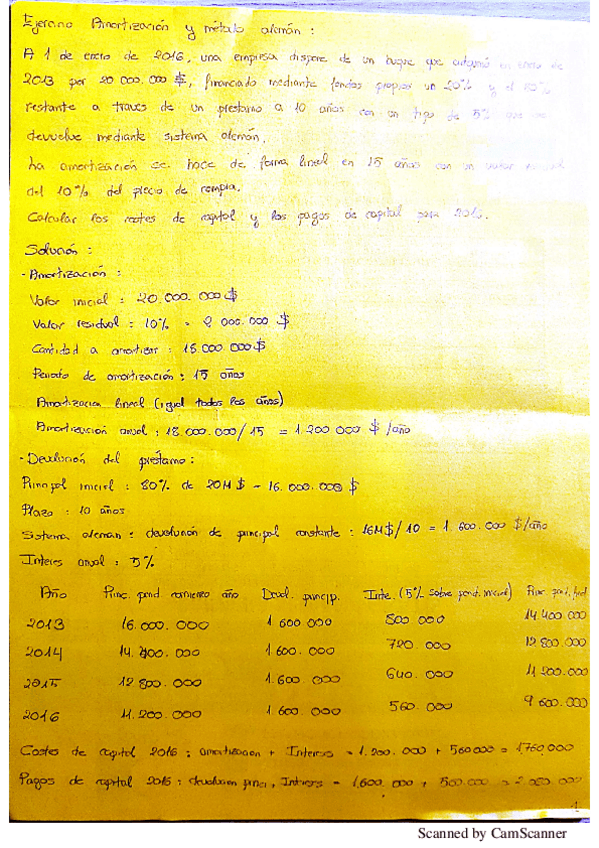 Ejercicio Amortización y método alemán:
A 1 de enero de 2016, una empresa dispone de un buque que adquirió en enero de
2013 por 20 000.000 $, financiado mediante fondos propios un 20% y el 80%
restante a través de un prestamo a 10 años con un tipo de 5% que se
devuelve mediante sistema alemán.
La amortización se hace de forma lineal en 15 años con un valor residual
del 10% del precio de compra.
Calcular los costes de capital y los pagos de capital para 2016.
Solución:
- Amortización:
Valor inicial: 20.000.000 $
Valor residual: 10% = 2 000.000 $
Cantidad a amortizar: 18.000 000 $
Periodo de amortización: 15 años
Amortización lineal (igual todos los años)
Amortización anual: 18.000.000/15 = 1.200 000 $/año
- Devolución del préstamo:
Principal inicial: 80% de 20M $ - 16.000.000 $
Plazo: 10 años
Sistema aleman: devolución de principal constante: 16M$/10 = 1.600.000 $/año
Interes anual: 5%
Año Princ. pend. comienzo año Devol. princip. Inte. (5% sobre pend. inicial) Princ. pend. final
2013 16.000.000 1 600 000 800 000 14 400.000
2014 14.400.000 1 600.000 720.000 12 800.000
2015 12 800.000 1.600.000 640.000 11 200.000
2016 11.200.000 1 600.000 560.000 9 600.000
Costes de capital 2016: amortizacion + Intereses = 1.200.000 + 560000 = 1760000
Pagos de capital 2016: devolucion princ, Intereses =
1
Scanned by CamScanner